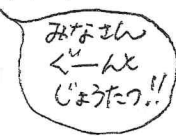 みなさん
ぐーんと
じょうたつ!!